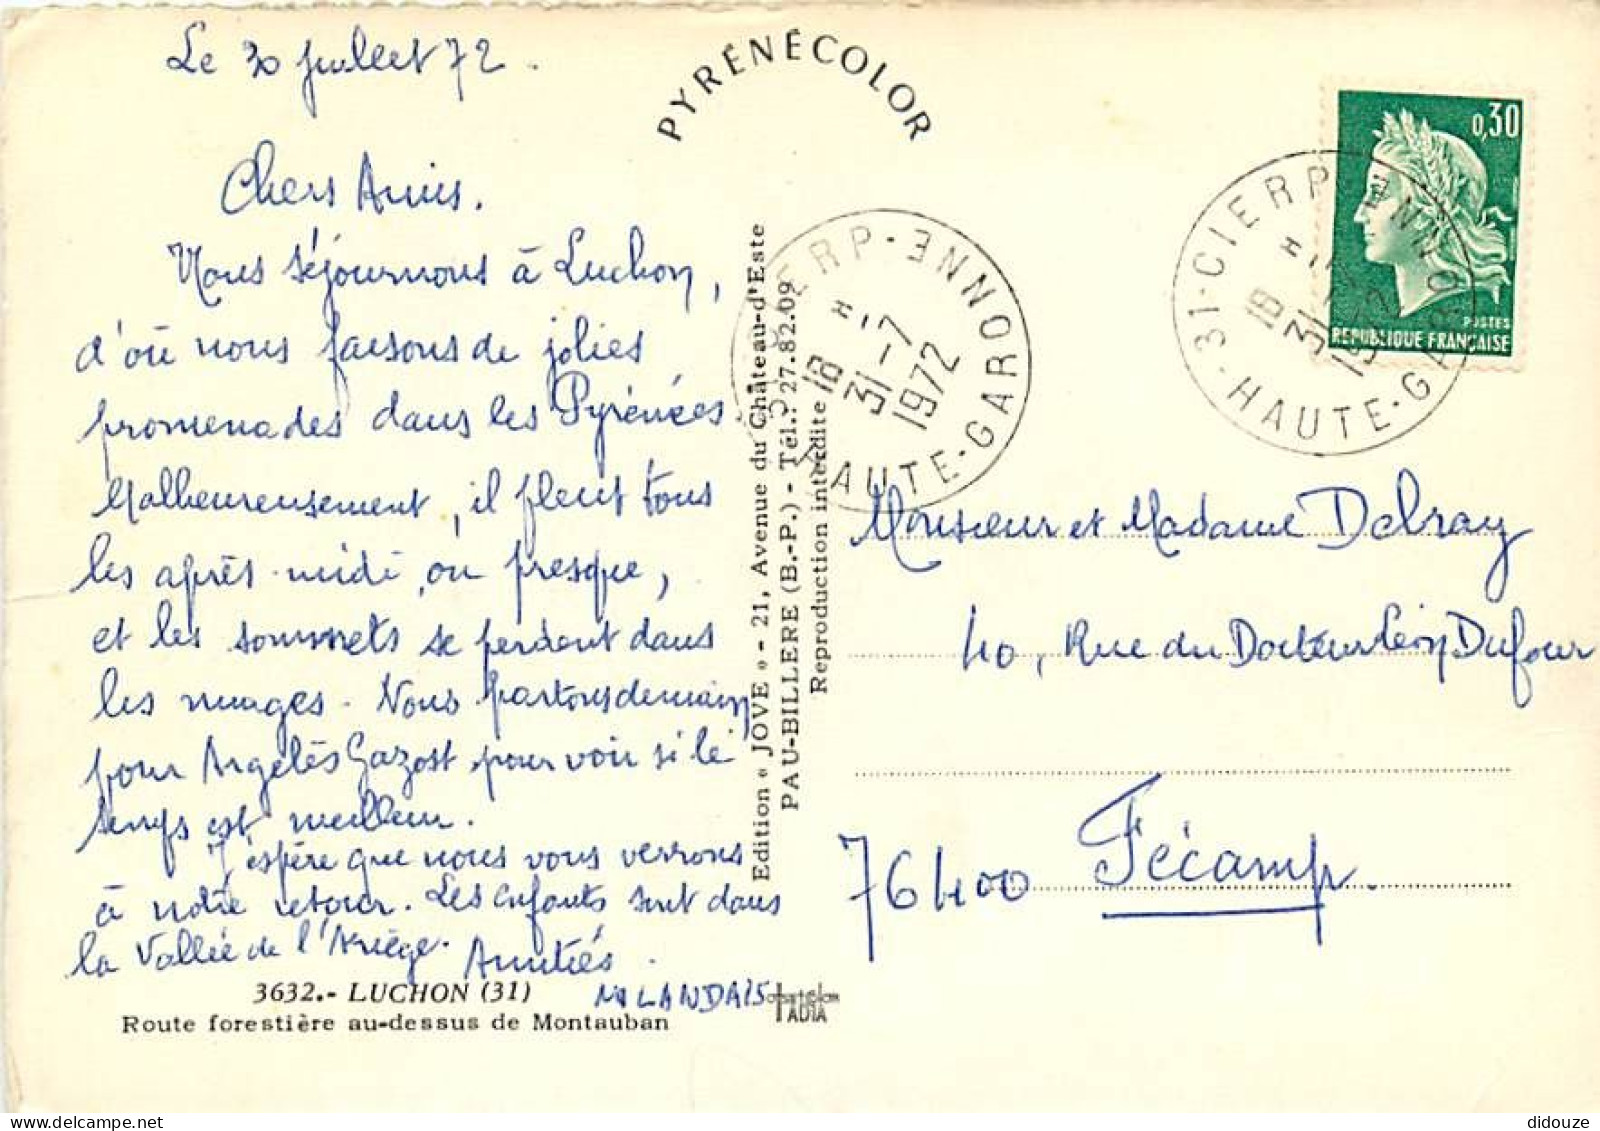 Le 30 juillet 72.
Chers Amis.
Nous séjournons à Luchon,
d'où nous faisons de jolies
promenades dans les Pyrénées
Malheureusement, il pleut tous
les après-midi, ou presque,
et les sommets se perdent dans
les nuages. Nous partons demain
pour Argelès Gazost pour voir si le
temps est meilleur.
J'espère que nous vous verrons
à notre retour. Les enfants sont dans
la Vallée de l'Ariège.
Amitiés.
LANDAIS
3632.- LUCHON (31)
Route forestière au-dessus de Montauban
PYRÉNÉCOLOR
Edition « JOVE » - 21, Avenue du Château-d'Este
PAU-BILLERE (B.-P.) - Tél.: 27.82.09
Reproduction interdite
IERP-ENNONE
18 H
31-7
1972
HAUTE-GARONNE
31-CIERP-
18 H
31-7
1972
HAUTE-GARONNE
0,30
POSTES
REPUBLIQUE FRANÇAISE
Monsieur et Madame Delray
40, Rue du Docteur Léon Dufour
76400 Fécamp.
didouze